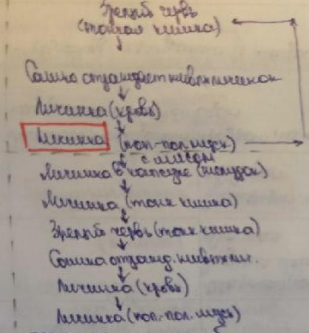 Зрелый червь
(тонкая кишка)
Самка отрождает живых личинок
Личинка (кровь)
Личинка (поп-поп. мускул.)
с мясом
Личинка в капсуле (желудок)
Личинка (тонк кишка)
Зрелый червь (тонк кишка)
Самка отрожд. живых лич.
Личинка (кровь)
Личинка (поп.-поп. муск.)